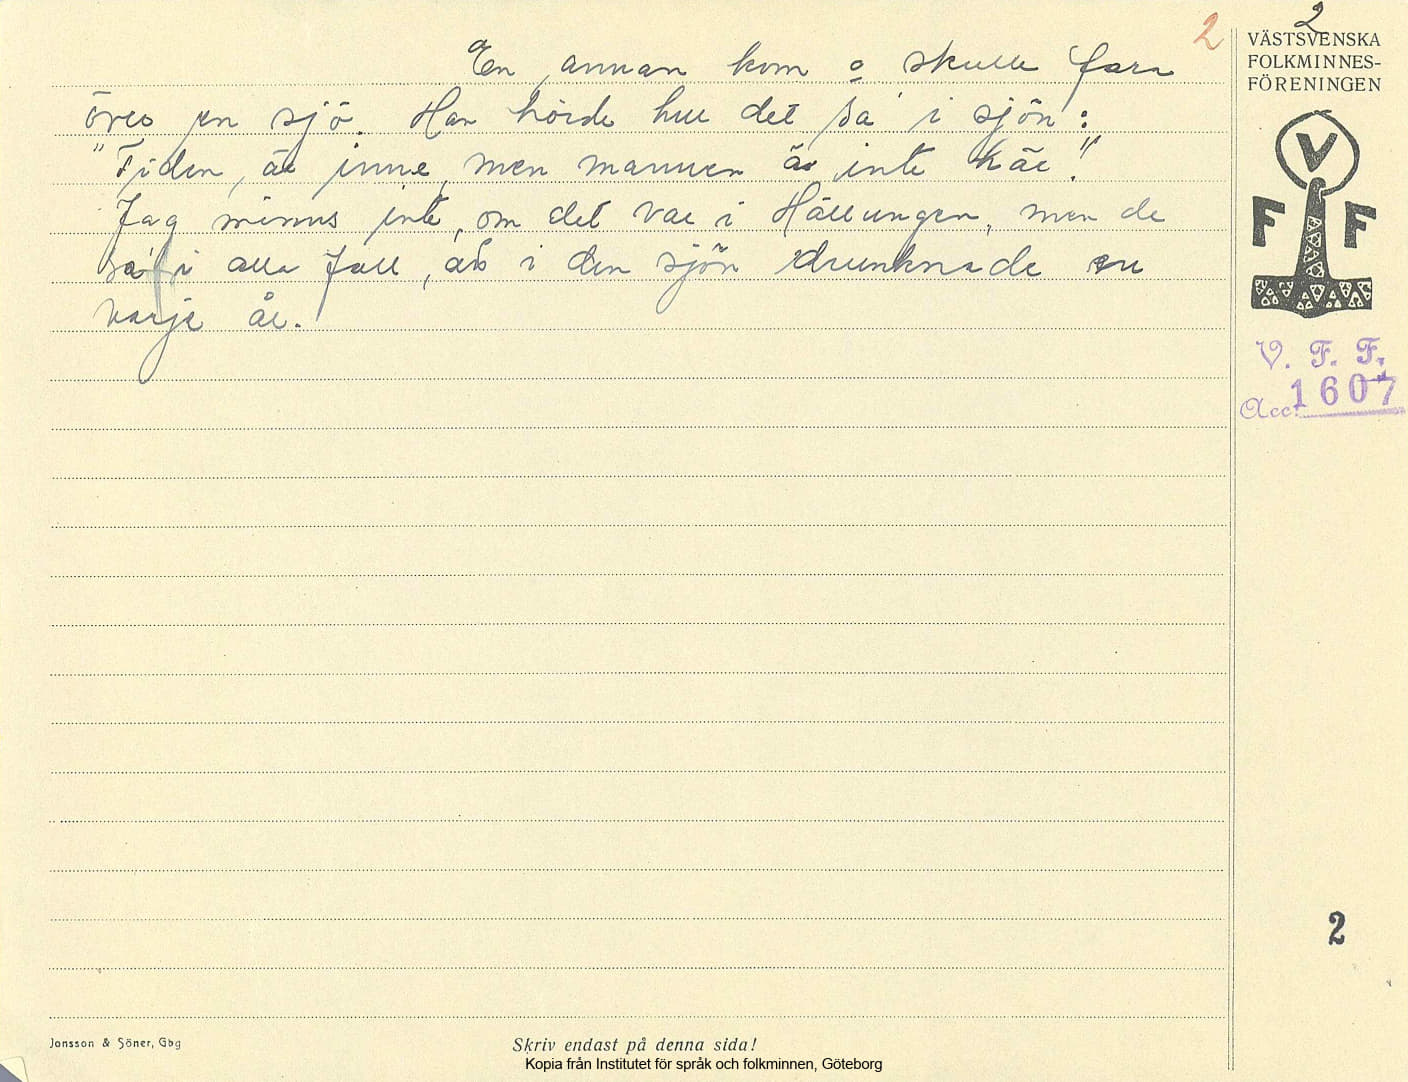 2
2
VÄSTSVENSKA
FOLKMINNES-
FÖRENINGEN
En annan kom o skulle fara
över en sjö. Han hörde hur det sa i sjön:
"Tiden är inne, men mannen är inte här."
Jag minns inte, om det var i Hällungen, men de
sa' i alla fall, att i den sjön drunknade en
varje år.
V
F F
V. F. F.
Acc: 1607
2
Jonsson & Söner, Gbg
Skriv endast på denna sida!
Kopia från Institutet för språk och folkminnen, Göteborg